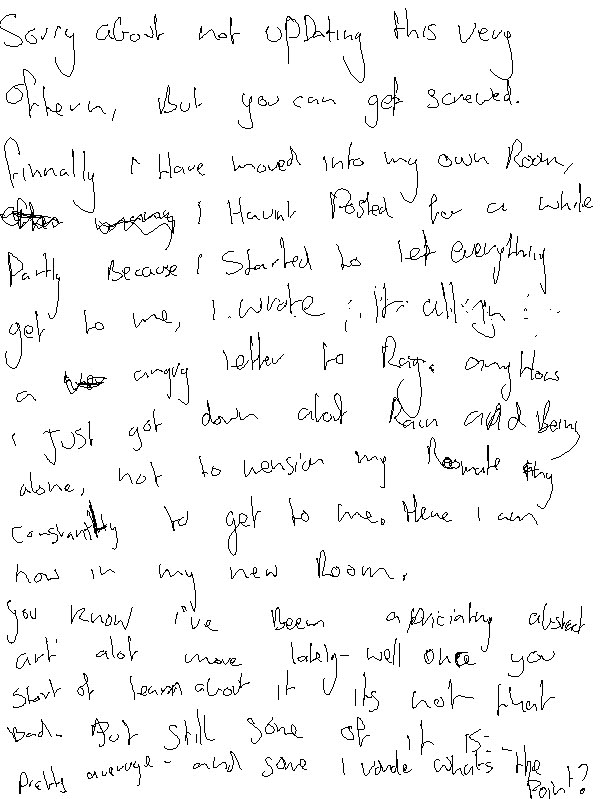 Sorry about not upDating this very
ofthern, But you can get screwed.
finnally i Have moved into my own Room,
I Havnt Posted for a while
Partly Because i Started to let everything
get to me, I wrote it all in
a angry letter to Ray. anyHow
i JUST got down about Rain and Being
alone, not to mension my Roomate
constantly to get to me. Here I am
now in my new Room.
you know i've Been apriciating abstract
art alot more lately - well once you
start of learn about it its not that
Bad. But still some of it is -
Pretty average - and some I wonde what's the Point?